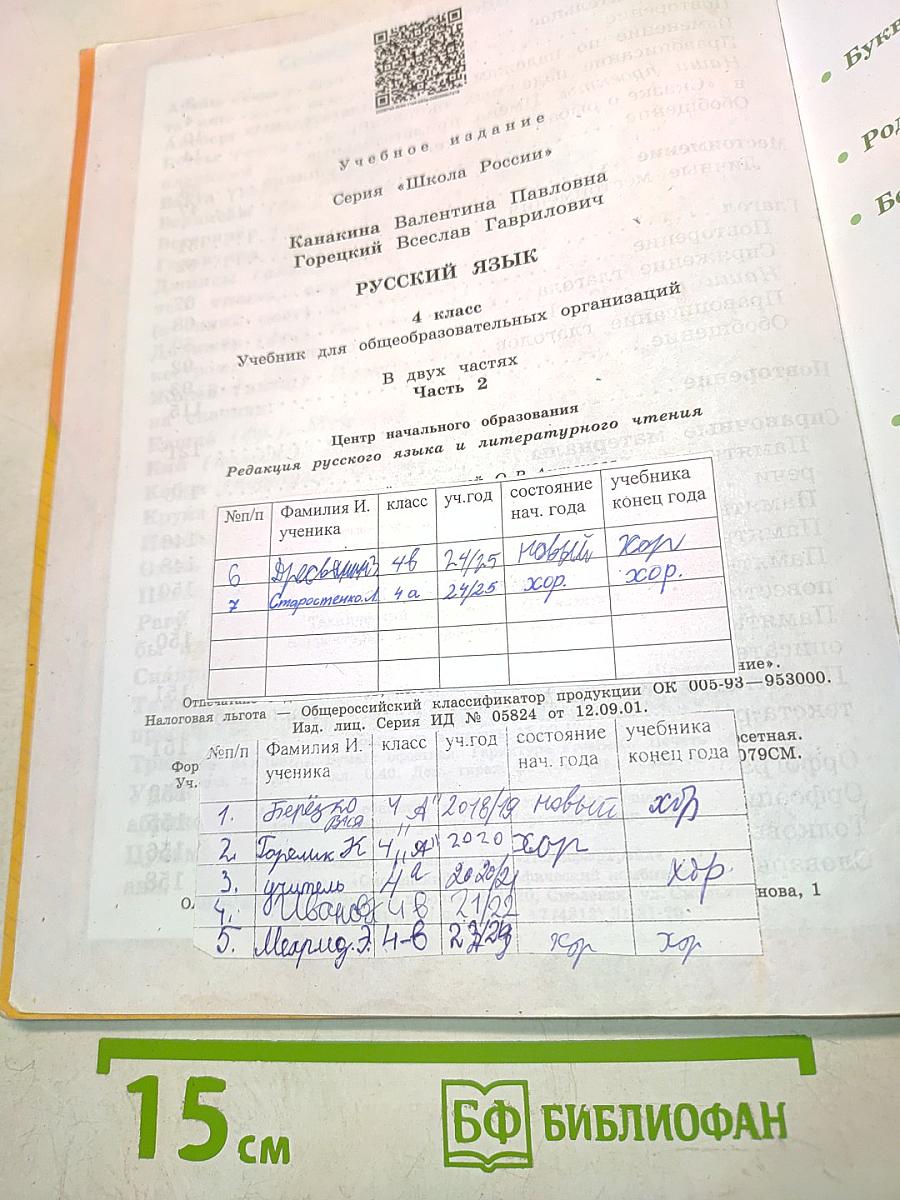 Учебное издание
Серия «Школа России»
Канакина Валентина Павловна
Горецкий Всеслав Гаврилович
РУССКИЙ ЯЗЫК
4 класс
Учебник для общеобразовательных организаций
В двух частях
Часть 2
Центр начального образования
Редакция русского языка и литературного чтения
№п/п Фамилия И. ученика класс уч.год состояние нач. года учебника конец года
6 4в 24/25 новый хор
7 Старостенко.Л. 4а 24/25 хор. хор.
ние».
Налоговая льгота — Общероссийский классификатор продукции ОК 005-93—953000.
Изд. лиц. Серия ИД № 05824 от 12.09.01.
сетная.
Фор 079СМ.
Уч.
№п/п Фамилия И. ученика класс уч.год состояние нач. года учебника конец года
1. 4 „А" 2018/19 новый хор
2. Горелик К 4 „А" 2020 хор
3. учитель 4а 2020/21 хор.
4. Иванов 4в 21/22
нова, 1
5. 4-в хор хор
Бук
Род
Бе
15 см
БФ БИБЛИОФАН